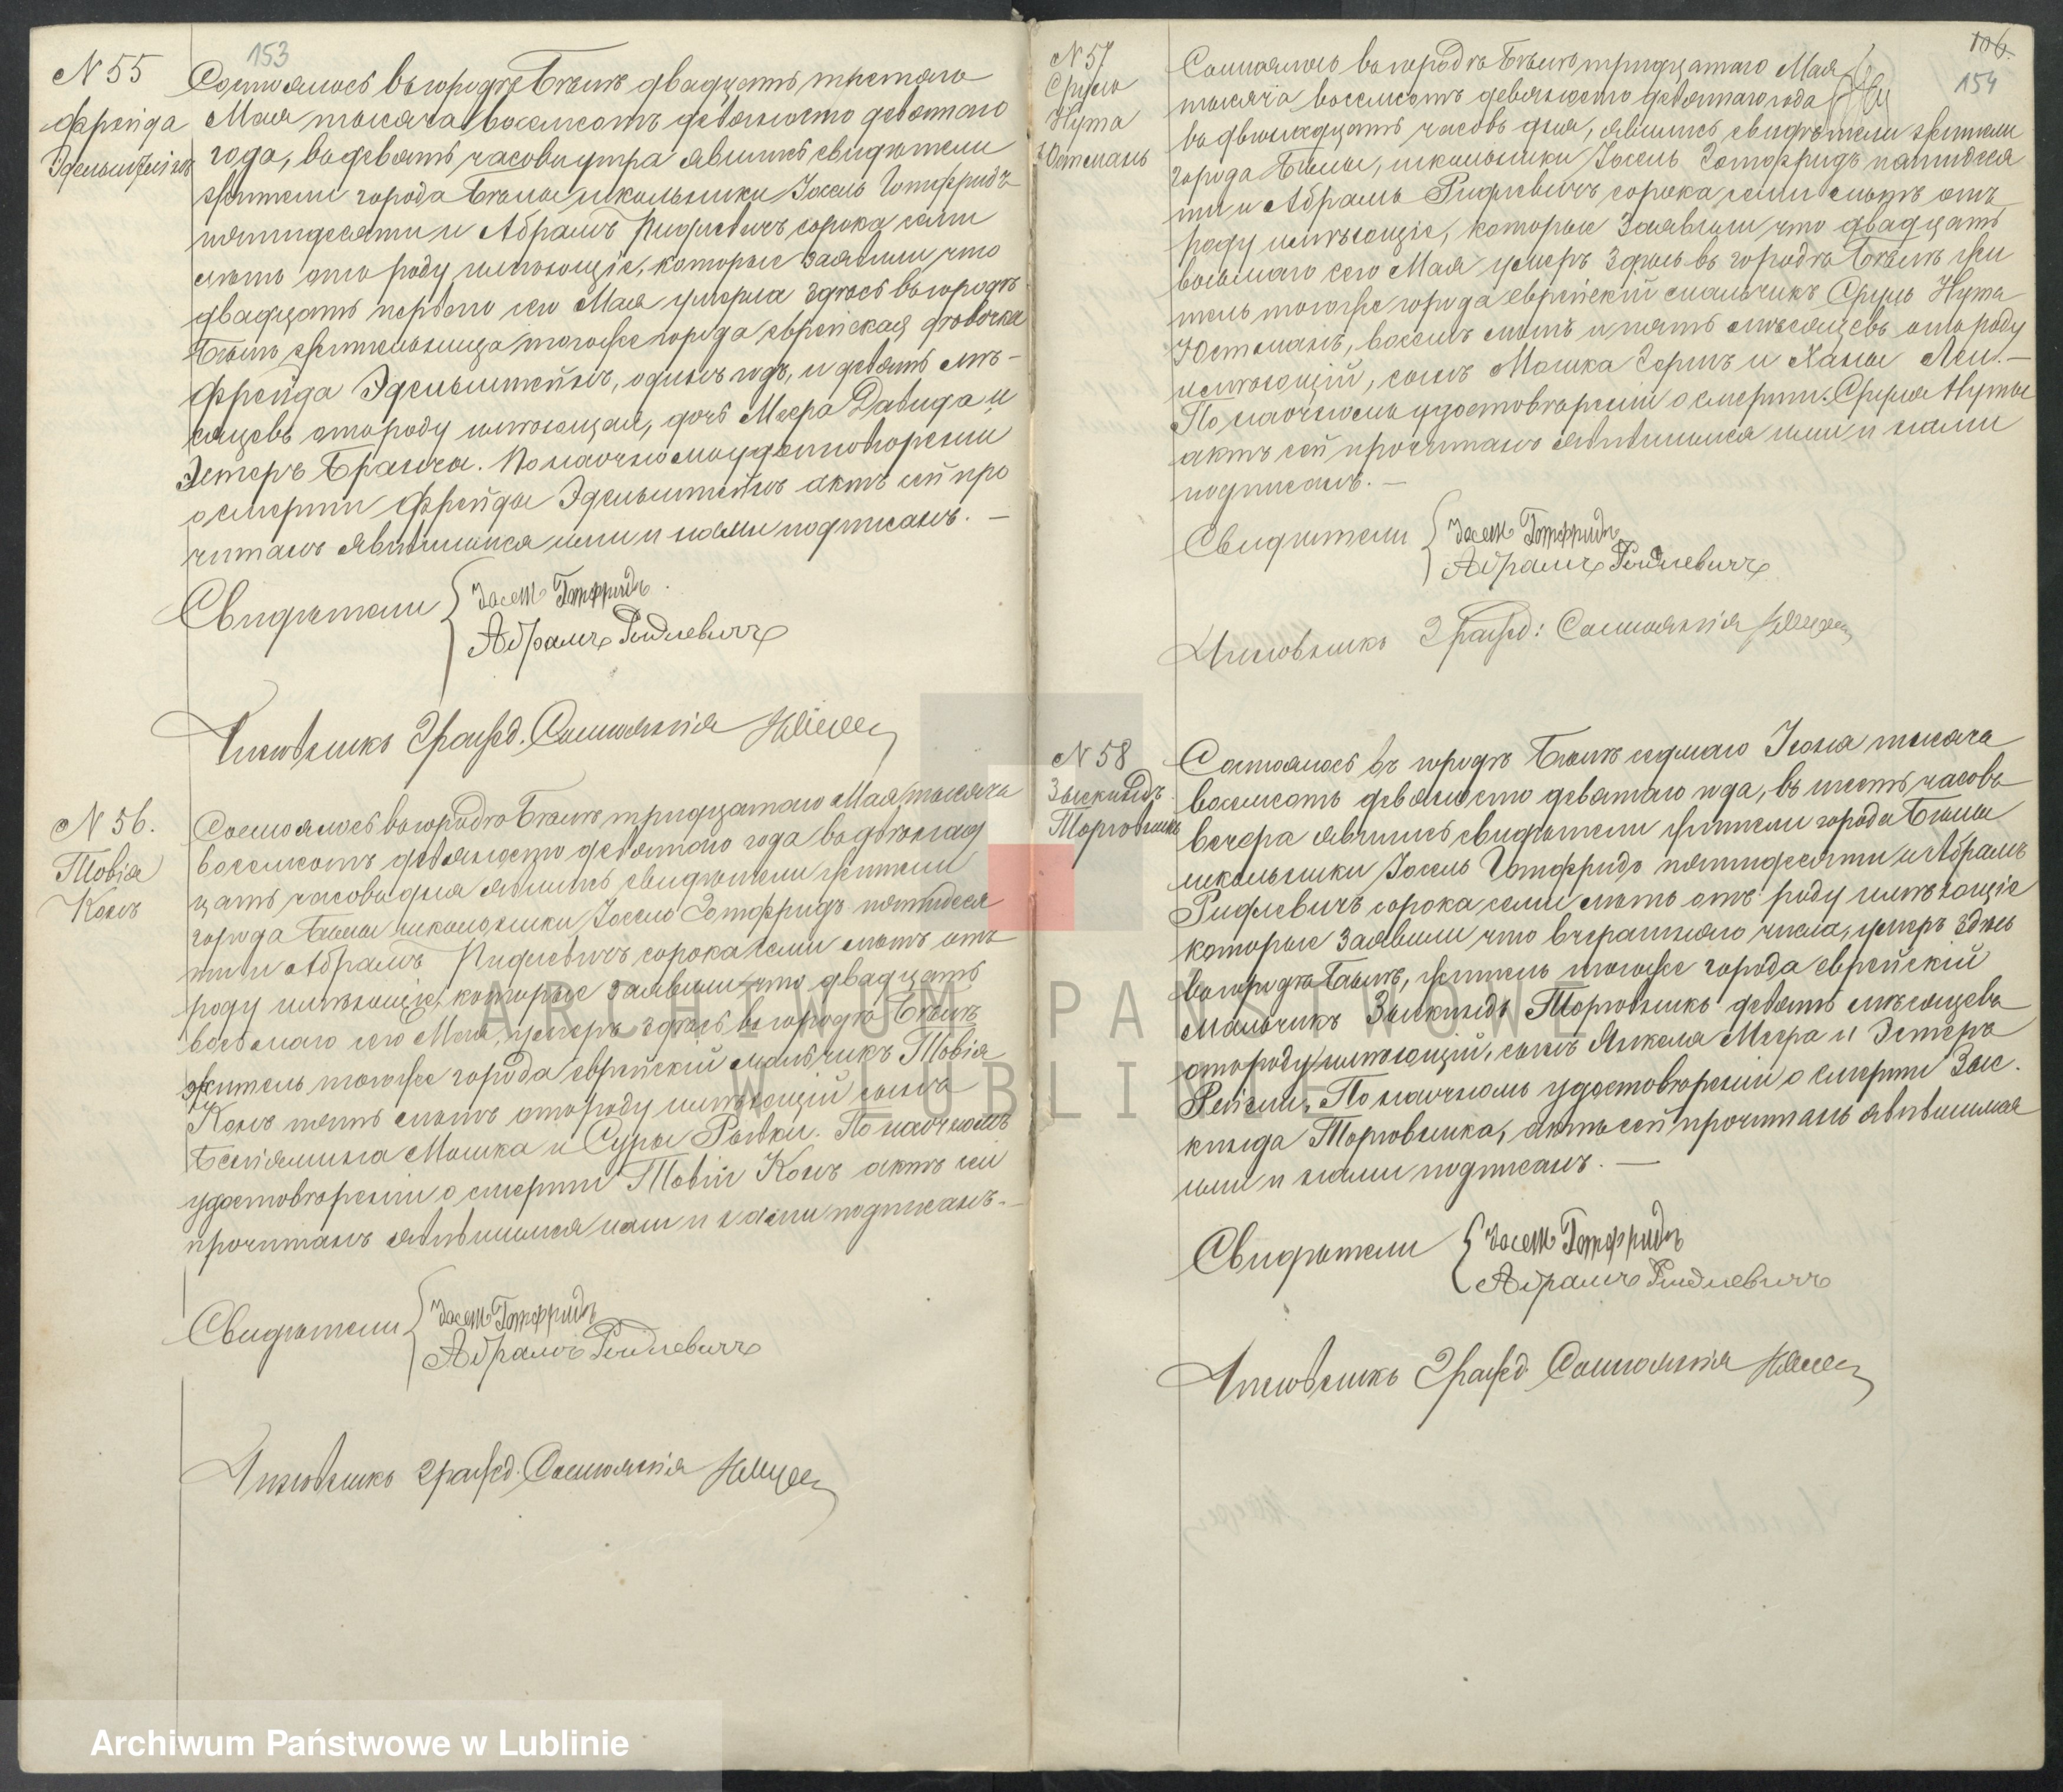 153
N 55
Фрейда
Эдельштейнъ
Состоялось въ городѣ Бѣлѣ двадцать третьяго
Мая тысяча восемьсотъ девяносто девятаго
года, въ девять часовъ утра явились свидѣтели
жители города Бѣлы школьники Іосель Готфридъ
пятидесяти и Абрамъ Ридлевичъ сорока семи
лѣтъ отъ роду имѣющіе, которые заявили что
двадцать перваго сего Мая умерла здѣсь въ городѣ
Бѣлѣ жительница тогоже города еврейская дѣвочка
Фрейда Эдельштейнъ, одинъ годъ, и девять мѣ-
сяцевъ отъ роду имѣющая, дочь Меера Давида и
Эстеръ Брайна. По наочномъ удостовѣреніи
о смерти Фрейды Эдельштейнъ актъ сей про
читанъ явившимся ими и нами подписанъ. —
Свидѣтели { Іосель Готфридъ
Абрамъ Ридлевичъ
Чиновникъ Гражд. Состоянія
N 56.
Товія
Конъ
Состоялось въ городѣ Бѣлѣ тридцатаго Мая тысяча
восемьсотъ девяносто девятаго года въ двѣнад
цать часовъ дня явились свидѣтели жители
города Бѣлы школьники Іосель Готфридъ пятидеся
ти и Абрамъ Ридлевичъ сорока семи лѣтъ отъ
роду имѣющіе, которые заявили что двадцать
восьмаго сего Мая, умеръ здѣсь въ городѣ Бѣлѣ
житель тогоже города еврейскій мальчикъ Товія
Конъ пять лѣтъ отъ роду имѣющій сынъ
Беніямина Мошка и Суры Рывки. По наочномъ
удостовѣреніи о смерти Товіи Конъ актъ сей
прочитанъ явившимся ими и нами подписанъ. —
Свидѣтели { Іосель Готфридъ
Абрамъ Ридлевичъ
Чиновникъ Гражд. Состоянія
106.
154
N 57
Сруль
Нута
Юстманъ
Состоялось въ городѣ Бѣлѣ тридцатаго Мая
тысяча восемьсотъ девяносто девятаго года
въ двѣнадцать часовъ дня, явились свидѣтели жители
города Бѣлы, школьники Іосель Готфридъ пятидеся
ти и Абрамъ Ридлевичъ сорока семи лѣтъ отъ
роду имѣющіе, которые заявили что двадцать
восьмаго сего Мая умеръ здѣсь въ городѣ Бѣлѣ жи
тель тогоже города еврейскій мальчикъ Сруль Нута
Юстманъ, восемь лѣтъ и пять мѣсяцевъ отъ роду
имѣющій, сынъ Мошка Герша и Ханы Леи. —
По наочномъ удостовѣреніи о смерти Сруля Нуты
актъ сей прочитанъ явившимся ими и нами
подписанъ. —
Свидѣтели { Іосель Готфридъ
Абрамъ Ридлевичъ
Чиновникъ Гражд: Состоянія
N 58
Зыскиндъ
Торговникъ
Состоялось въ городѣ Бѣлѣ седмаго Іюня тысяча
восемьсотъ девяносто девятаго года, въ шесть часовъ
вечера явились свидѣтели жители города Бѣлы
школьники Іосель Готфридъ пятидесяти и Абрамъ
Ридлевичъ сорока семи лѣтъ отъ роду имѣющіе
которые заявили что вчерашняго числа, умеръ здѣсь
въ городѣ Бѣлѣ, житель тогоже города еврейскій
мальчикъ Зыскиндъ Торговникъ девять мѣсяцевъ
отъ роду имѣющій, сынъ Янкеля Меера и Эстеръ
Рейзли. По наочномъ удостовѣреніи о смерти Зыс.
кинда Торговника, актъ сей прочитанъ явившимся
ими и нами подписанъ. —
Свидѣтели { Іосель Готфридъ
Абрамъ Ридлевичъ
Чиновникъ Гражд. Состоянія
ARCHIWUM PAŃSTWOWE
W LUBLINIE
Archiwum Państwowe w Lublinie